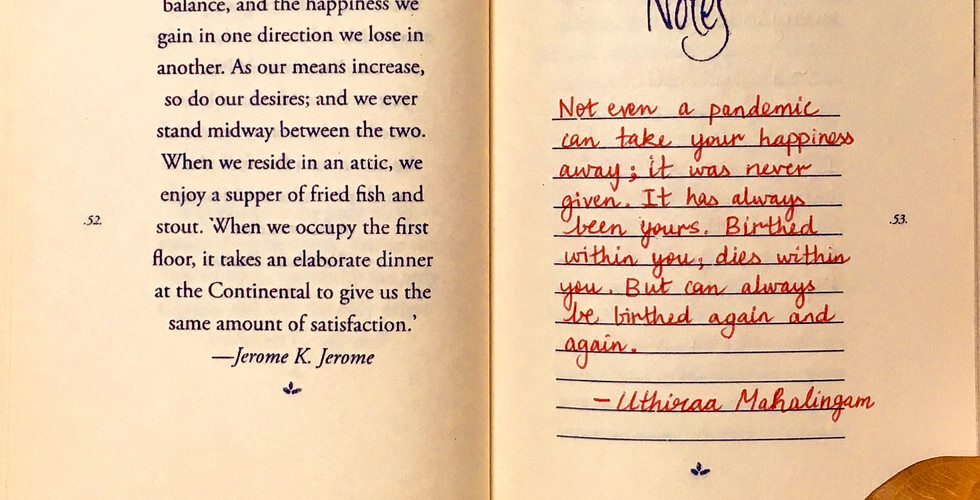 balance, and the happiness we
gain in one direction we lose in
another. As our means increase,
so do our desires; and we ever
stand midway between the two.
When we reside in an attic, we
enjoy a supper of fried fish and
stout. 'When we occupy the first
floor, it takes an elaborate dinner
at the Continental to give us the
same amount of satisfaction.'
—Jerome K. Jerome
.52.
Notes
Not even a pandemic
can take your happiness
away; it was never
given. It has always
been yours. Birthed
within you; dies within
you. But can always
be birthed again and
again.
- Uthiraa Mahalingam
.53.